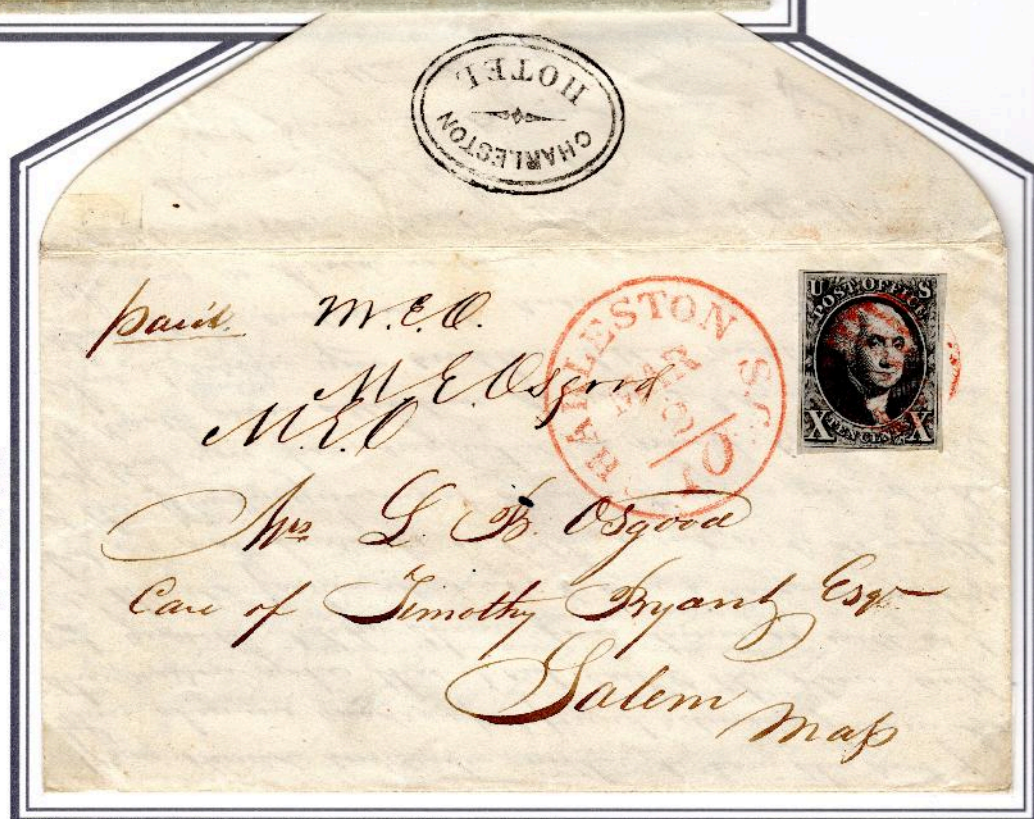 CHARLESTON
HOTEL
paid. M.E.O.
M. E. Osgood
M.E.O
CHARLESTON S.C.
MAR
10
U S
POST OFFICE
X TEN CENTS X
Mrs L. B. Osgood
Care of Timothy Bryant Esqr
Salem
Mass